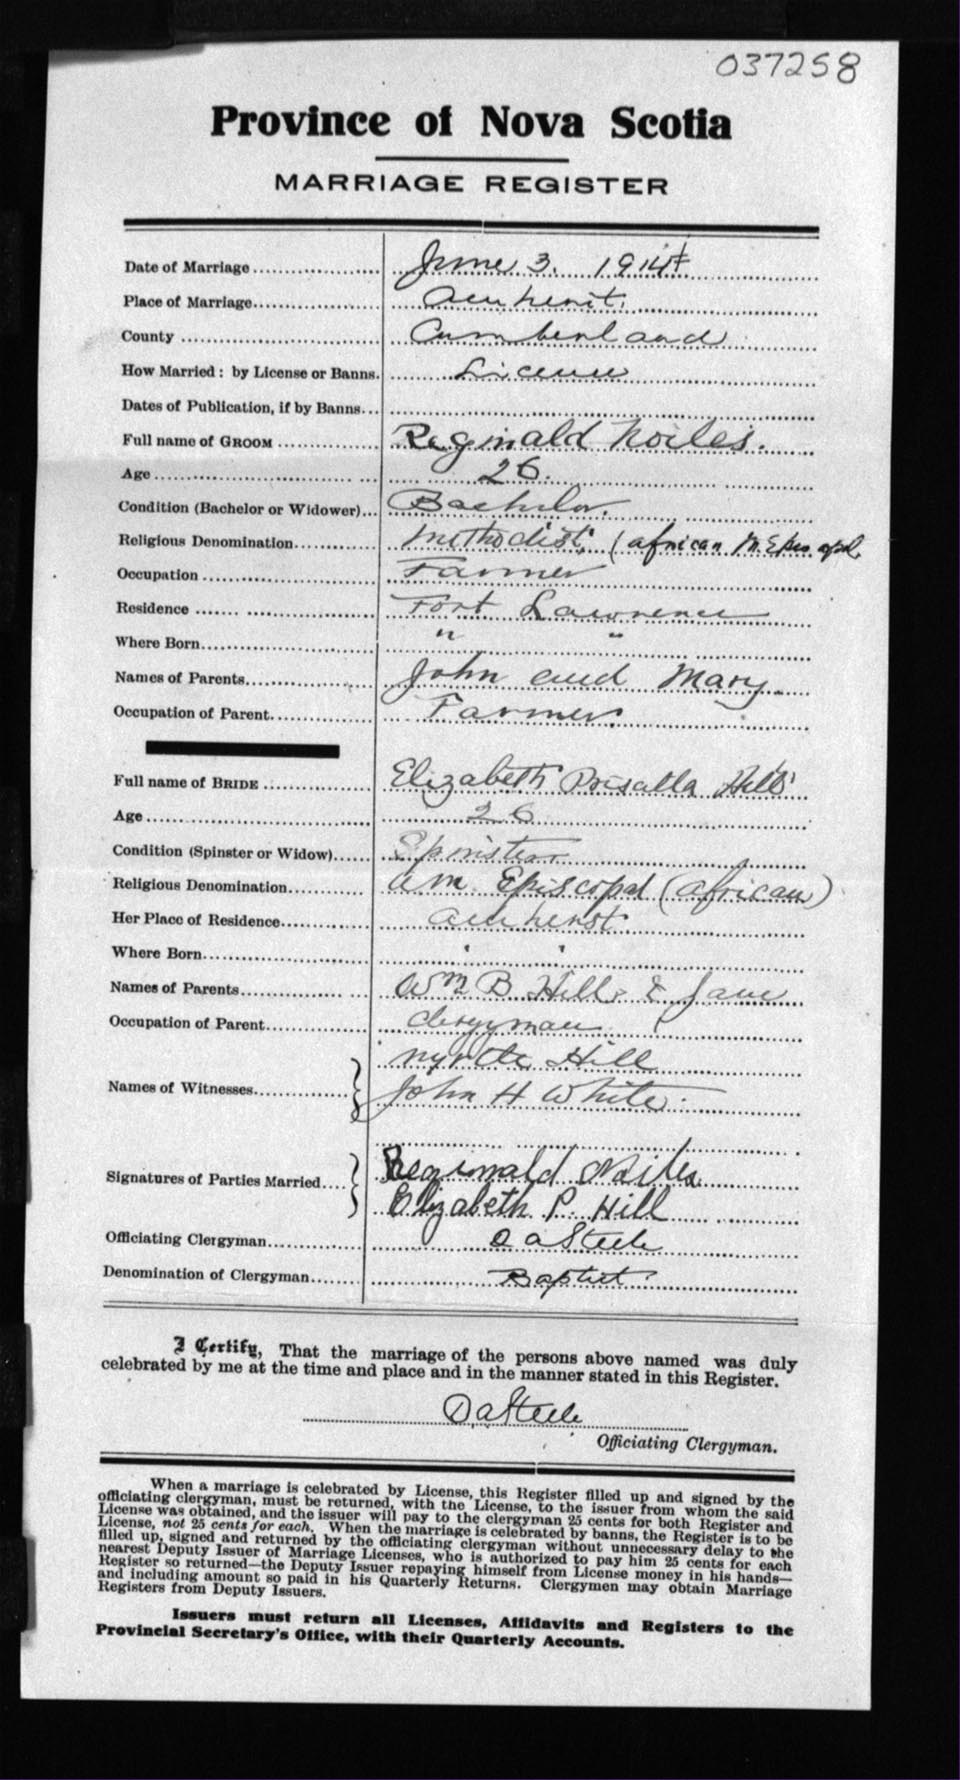 037258
Province of Nova Scotia
MARRIAGE REGISTER
Date of Marriage June 3. 1914
Place of Marriage Amherst.
County Cumberland
How Married: by License or Banns. License
Dates of Publication, if by Banns
Full name of GROOM Reginald Noiles.
Age 26.
Condition (Bachelor or Widower) Bachelor.
Religious Denomination Methodist, (African M. Episcopal
Occupation Farmer
Residence Fort Lawrence
Where Born " "
Names of Parents John and Mary.
Occupation of Parent Farmer.
Full name of BRIDE Elizabeth Prisalla Hill
Age 26
Condition (Spinster or Widow) Spinster
Religious Denomination A M. Episcopal (African)
Her Place of Residence Amherst.
Where Born " "
Names of Parents Wm B Hill & Jane
Occupation of Parent Clergyman
Myrtle Hill
Names of Witnesses John H White.
Signatures of Parties Married Reginald Noiles
Elizabeth P. Hill
Officiating Clergyman D A Steele
Denomination of Clergyman Baptist
I Certify, That the marriage of the persons above named was duly
celebrated by me at the time and place and in the manner stated in this Register.
D A Steele
Officiating Clergyman.
When a marriage is celebrated by License, this Register filled up and signed by the
officiating clergyman, must be returned, with the License, to the issuer from whom the said
License was obtained, and the issuer will pay to the clergyman 25 cents for both Register and
License, not 25 cents for each. When the marriage is celebrated by banns, the Register is to be
filled up, signed and returned by the officiating clergyman without unnecessary delay to the
nearest Deputy Issuer of Marriage Licenses, who is authorized to pay him 25 cents for each
Register so returned—the Deputy Issuer repaying himself from License money in his hands—
and including amount so paid in his Quarterly Returns. Clergymen may obtain Marriage
Registers from Deputy Issuers.
Issuers must return all Licenses, Affidavits and Registers to the
Provincial Secretary's Office, with their Quarterly Accounts.